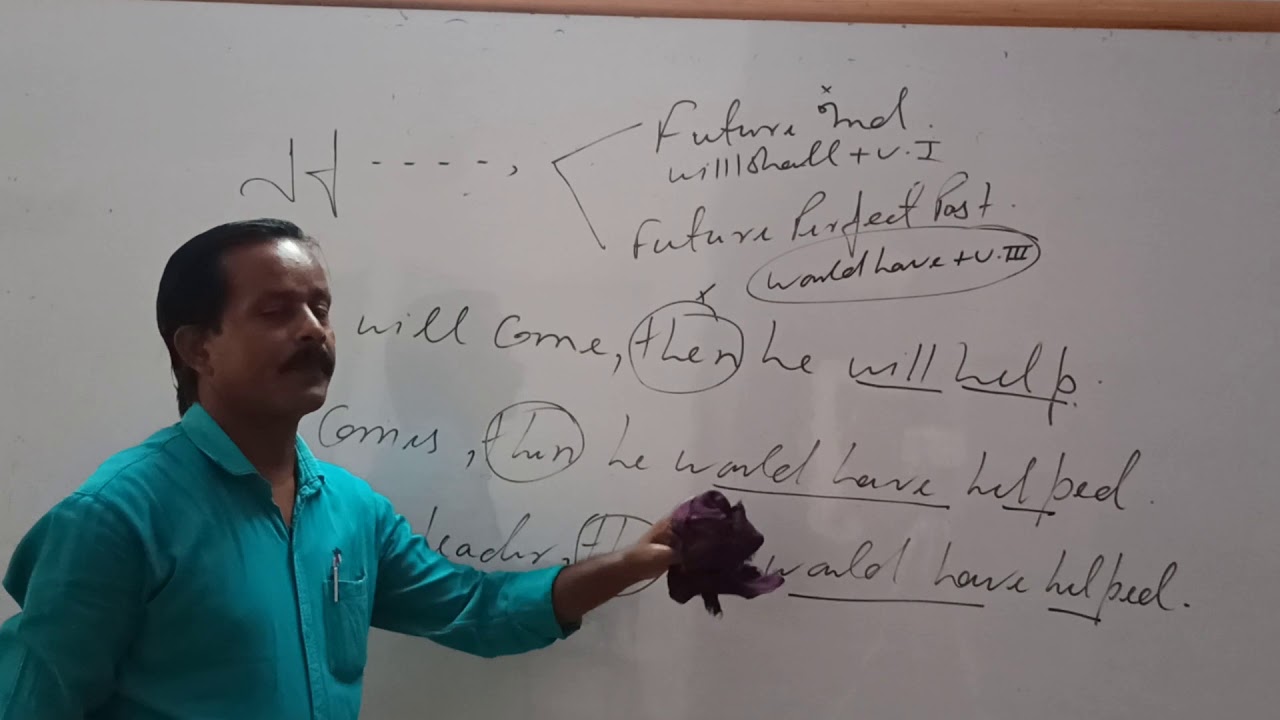 Future Ind.
will/shall + V.I
Future Perfect Past.
would have + V.III
will come, then he will help.
comes, then he would have helped.
leader, would have helped.